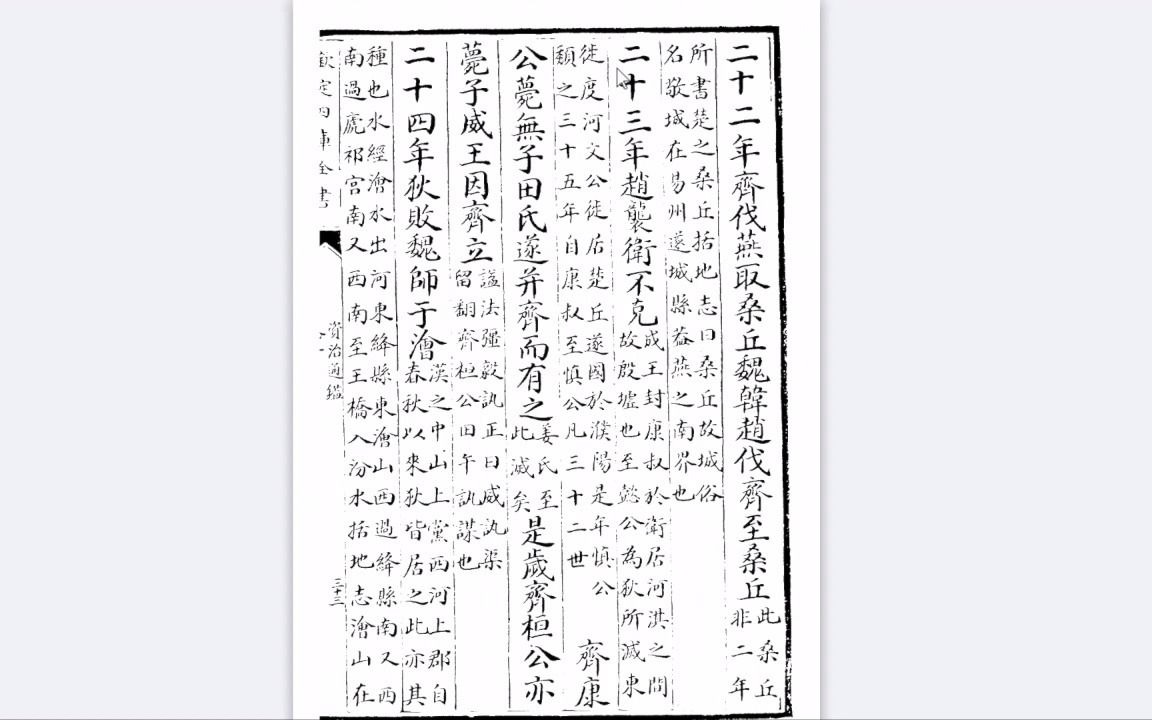 二十二年齊伐燕取桑丘魏韓趙伐齊至桑丘
此桑丘
非二年
所書楚之桑丘括地志曰桑丘故城俗
名敬城在易州遂城縣葢燕之南界也
二十三年趙襲衛不克
成王封康叔於衛居河淇之間
故殷墟也至懿公為狄所滅東
徙度河文公徙居楚丘遂國於濮陽是年慎公
頽之三十五年自康叔至慎公凡三十二世
齊康
公薨無子田氏遂并齊而有之
姜氏至
此滅矣
是歲齊桓公亦
薨子威王因齊立
諡法彊毅訅正曰威訅渠
留翻齊桓公田午訅謀也
二十四年狄敗魏師于澮
漢之中山上黨西河上郡自
春秋以來狄皆居之此亦其
種也水經澮水出河東絳縣東澮山西過絳縣南又西
南過虒祁宫南又西南至王橋入汾水括地志澮山在
欽定四庫全書
資治通鑑
三十三